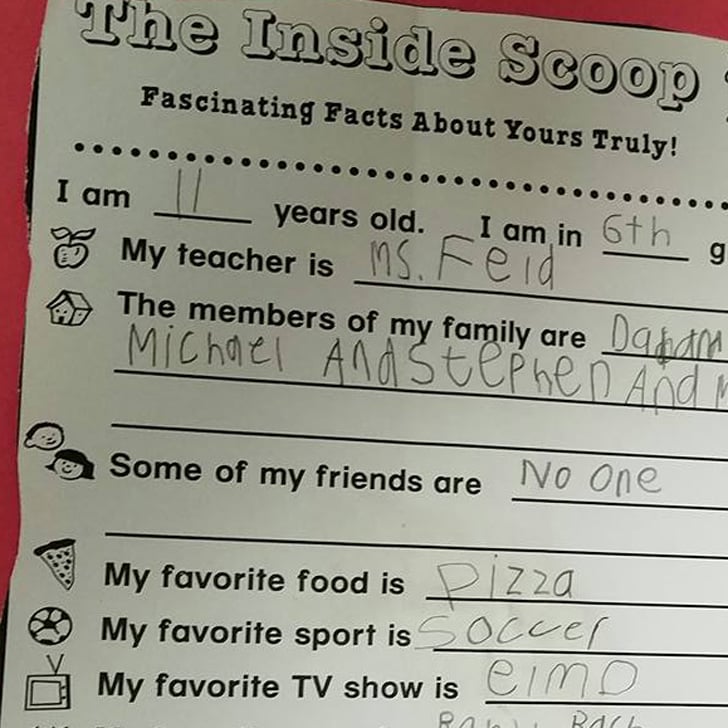 The Inside Scoop
Fascinating Facts About Yours Truly!
I am 11 years old. I am in 6th g
My teacher is Ms. Feld
The members of my family are
Michael And Stephen And
Some of my friends are No one
My favorite food is pizza
My favorite sport is Soccer
My favorite TV show is elmo